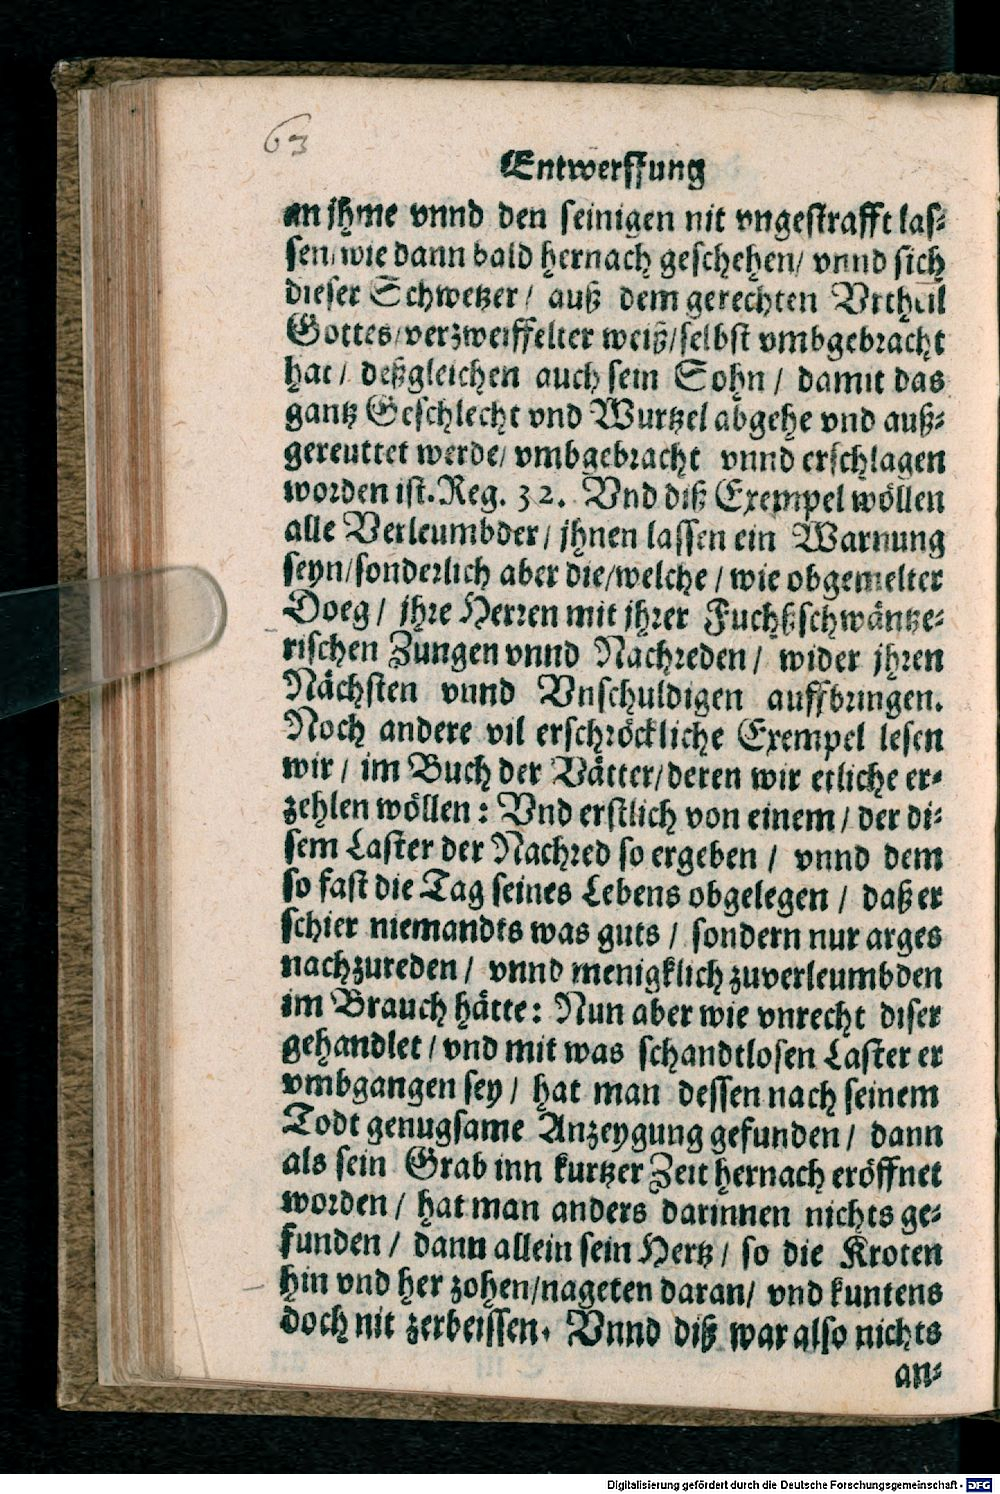 63
Entwerffung
an jhme vnnd den seinigen nit vngestrafft las-
sen/ wie dann bald hernach geschehen/ vnnd sich
dieser Schwetzer / auß dem gerechten Vrtheil
Gottes/ verzweiffelter weiß/ selbst vmbgebracht
hat / deßgleichen auch sein Sohn / damit das
gantz Geschlecht vnd Wurtzel abgehe vnd auß-
gereuttet werde/ vmbgebracht vnnd erschlagen
worden ist. Reg. 32. Vnd diß Exempel wöllen
alle Verleumbder / jhnen lassen ein Warnung
seyn/ sonderlich aber die/ welche / wie obgemelter
Doeg / jhre Herren mit jhrer Fuchßschwäntze-
rischen Zungen vnnd Nachreden / wider jhren
Nächsten vnnd Vnschuldigen auffbringen.
Noch andere vil erschröckliche Exempel lesen
wir / im Buch der Vätter/ deren wir etliche er-
zehlen wöllen: Vnd erstlich von einem / der di-
sem Laster der Nachred so ergeben / vnnd dem
so fast die Tag seines Lebens obgelegen / daß er
schier niemandts was guts / sondern nur arges
nachzureden / vnnd menigklich zuverleumbden
im Brauch hätte: Nun aber wie vnrecht diser
gehandlet / vnd mit was schandtlosen Laster er
vmbgangen sey / hat man dessen nach seinem
Todt genugsame Anzeygung gefunden / dann
als sein Grab inn kurtzer Zeit hernach eröffnet
worden / hat man anders darinnen nichts ge-
funden / dann allein sein Hertz / so die Kroten
hin vnd her zohen/ nageten daran/ vnd kuntens
doch nit zerbeissen. Vnnd diß war also nichts
an-
Digitalisierung gefördert durch die Deutsche Forschungsgemeinschaft - DFG